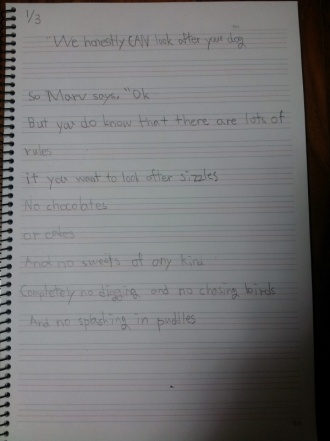 1/3
"We honestly CAN look after your dog
So Marv says. "Ok
But you do know that there are lots of
rules
if you want to look after sizzles
No chocolates
or cakes
And no sweets of any kind
Completely no digging and no chasing birds
And no splashing in puddles